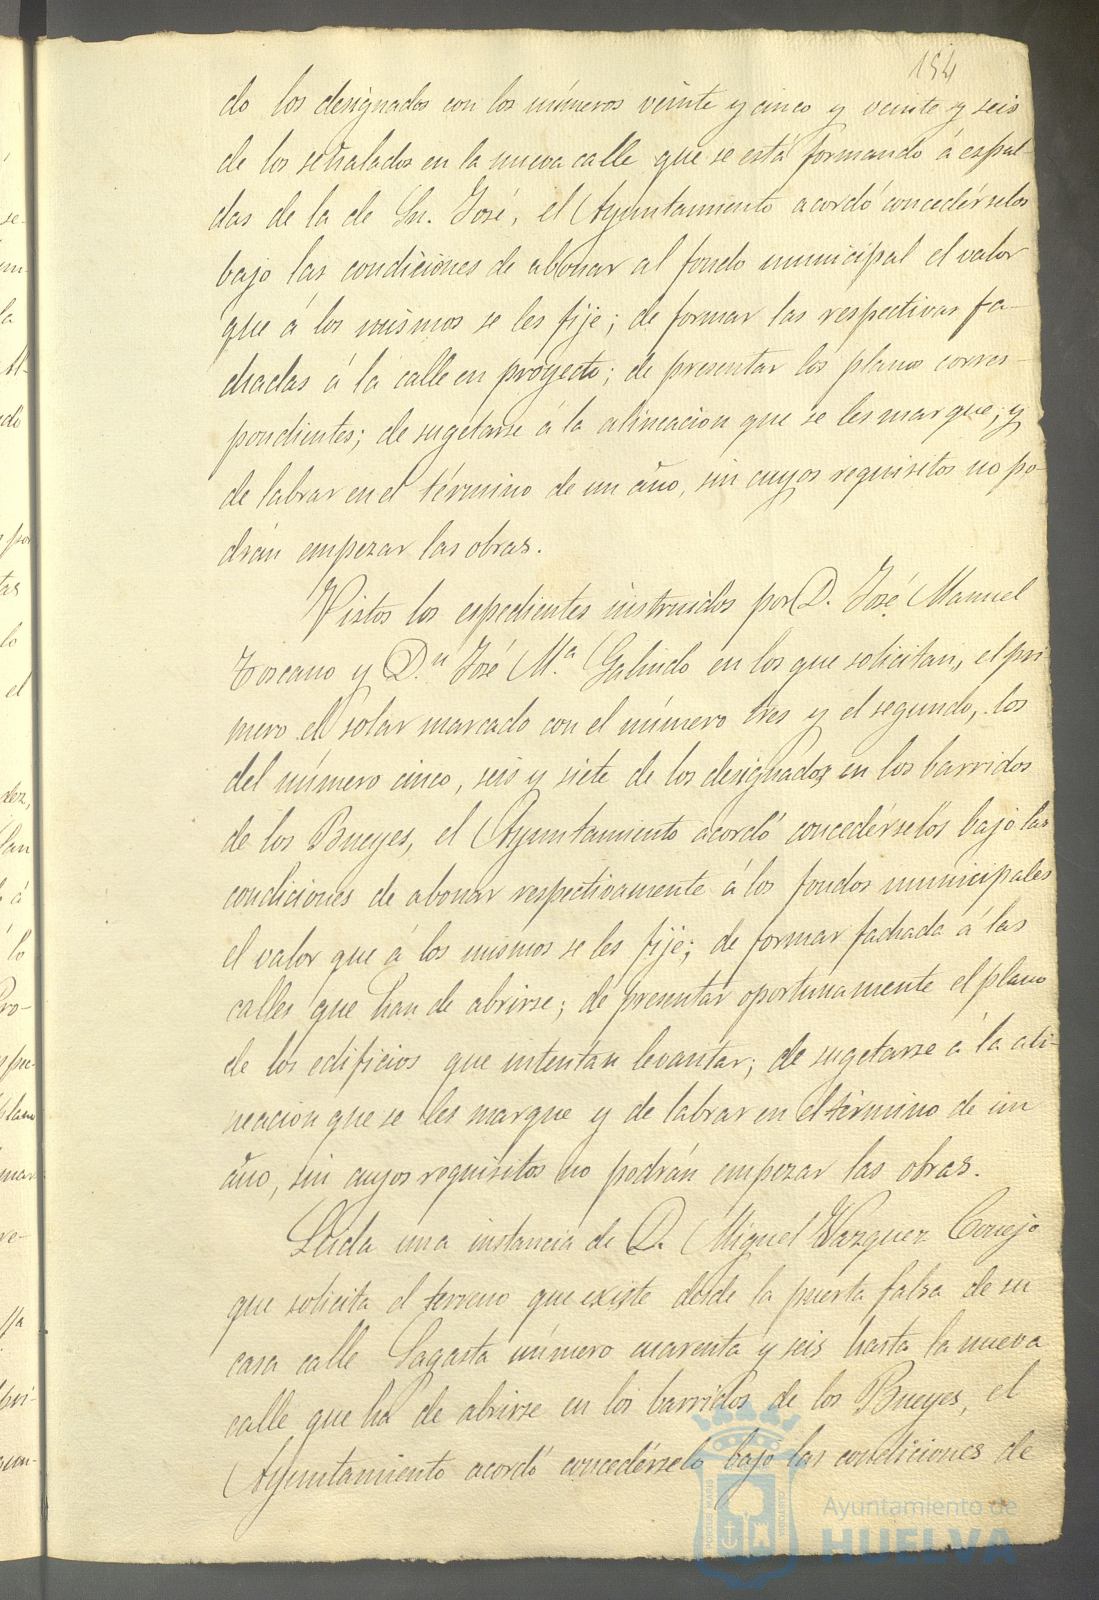 154
do los designados con los números veinte y cinco y veinte y seis
de los señalados en la nueva calle que se está formando á espal-
das de la de Sn. José, el Ayuntamiento acordó concedérselos
bajo las condiciones de abonar al fondo municipal el valor
que á los mismos se les fije; de formar las respectivas fa-
chadas á la calle en proyecto; de presentar los planos corres-
pondientes; de sugetarse á la alineacion que se les marque; y
de labrar en el término de un año, sin cuyos requisitos no po-
drán empezar las obras.
Vistos los espedientes instruidos por D. José Manuel
Toscano y Dn José Ma. Galindo en los que solicitan, el pri
mero el solar marcado con el número tres y el segundo, los
del número cinco, seis y siete de los designados en los barridos
de los Bueyes, el Ayuntamiento acordó concedérselos bajo las
condiciones de abonar respectivamente á los fondos municipales
el valor que á los mismos se les fije; de formar fachada á las
calles que han de abrirse; de presentar oportunamente el plano
de los edificios que intentan levantar; de sugetarse á la ali-
neacion que se les marque y de labrar en el término de un
año, sin cuyos requisitos no podrán empezar las obras.
Leida una instancia de D. Miguel Vazquez Conejo
que solicita el terreno que existe desde la puerta falsa de su
casa calle Sagasta número cuarenta y seis hasta la nueva
calle que ha de abrirse en los barridos de los Bueyes, el
Ayuntamiento acordó concedérselo bajo las condiciones de
Ayuntamiento de
HUELVA